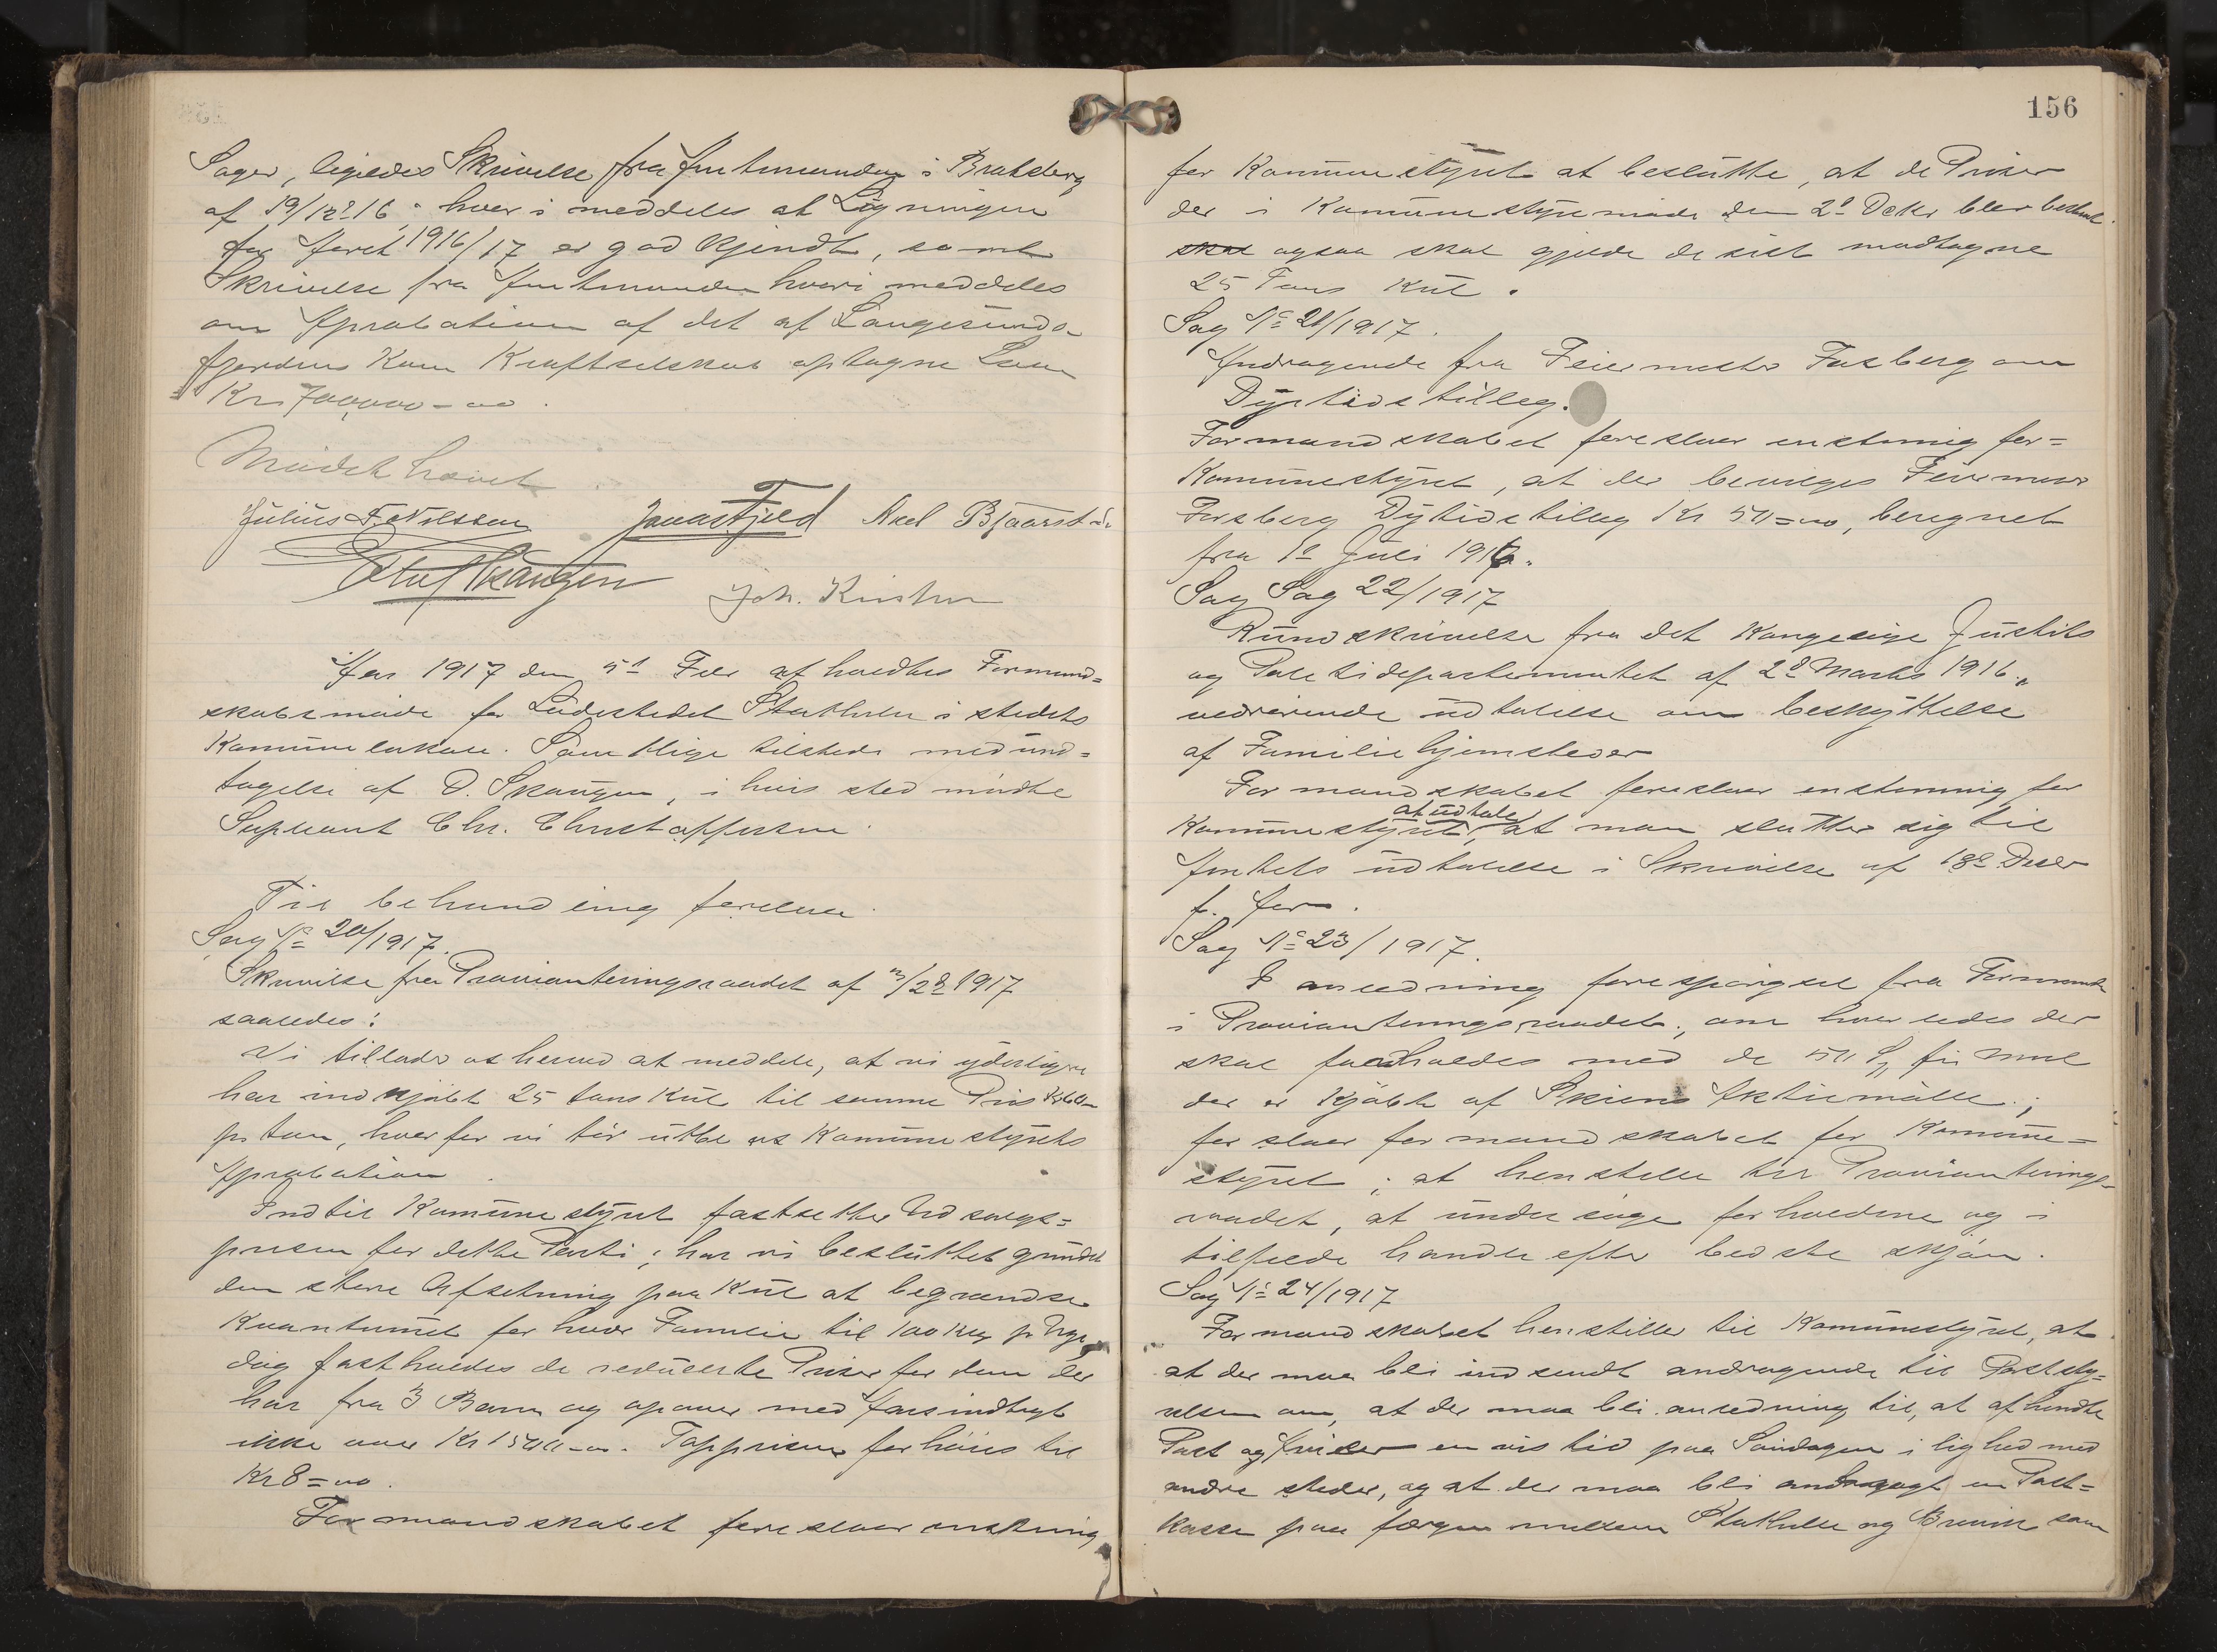 Sager, ligeledes Skrivelse fra Amtmanden i Bratsberg
af 19/12 16. hvori meddeles at Ligningen
for Aaret 1916/17 er godkjendt, samt
Skrivelse fra Amtmanden hvori meddeles
om Aprobation af det af Langesunds-
fjordens Kom Kraftselskab optagne Laan
Kr 700,000-00.
Mødet hævet.
Julius F. Nilssen Jonas Fjeld Axel Bjaarstad
Olaf Skaugen Joh. Kristen
Aar 1917 den 5te Febr afholdtes Formand=
skabsmøde for Ladestedet Stathelle i stedets
Kommunelokale. Samtlige tilstede med und=
tagelse af O. Skaugen, i hvis sted mødte
Supleant Chr. Christoffersen.
Til behandling forelaa.
Sag No 20/1917.
Skrivelse fra Provianteringsraadet af 3/2 1917
saaledes:
Vi tillader os herved at meddele, at vi yderligere
har indkjøbt 25 tons Kul til samme Pris
pr ton, hvorfor vi tør utbe os Kommunestyrets
Aprobation.
Indtil Kommunestyret fastsetter Udsalgs=
prisen for dette Parti, har vi besluttet grundet
den store Afsetning paa Kul at begrændse
Kvantumet for hver Familie til 100 Kg pr Uge,
dog fastholdes de reducerte Priser for dem der
har fra 3 Barn og opover med Aarsindtægt
ikke over Kr 1500-00. Topprisen forhøies til
Kr 8=00.
Formandskabet foreslaar enstemmig
156
for Kommunestyret at beslutte, at de Priser
der i Kommunestyremøde den 2de Oktr blev bestemt.
skal ogsaa skal gjelde de sist modtagne
25 Tons Kul.
Sag No 21/1917.
Andragende fra Feiermester Fosberg om
Dyrtidstilleg.
Formandskabet foreslaar enstemig for=
Kommunestyret, at der bevilges Feiermester
Forsberg Dyrtidstilleg Kr 50=00, beregnet
fra 1ste Juli 1916.
Sag Sag 22/1917
Rundskrivelse fra det Kongelige Justits
og Politidepartementet af 2de Marts 1916.,
vedrørende udtalelse om beskyttelse
af Familiehjemsteder
Formandskabet foreslaar enstemmig for
at udtale
Kommunestyret, at man slutter sig til
Amtets udtalelse i Skrivelse af 18de Desbr
f. Aar.
Sag No 23/1917.
I anledning forespørgsel fra Formanden
i Provianteringsraadet, om hvorledes der
skal forholdes med de 50 Sk fin Mel
der er Kjøbt af Skiens Aktiemølle;
forslaar formandskabet for Kommune=
styret; at henstelle til Provianterings-
raadet, at undersøge forholdene og i
tilfelde handle efter bedste skjøn.
Sag No 24/1917
Formandskabet henstiller til Kommunestyret, at
at der maa bli indsendt andragende til Poststy=
relsen om, at der maa bli anledning til, at afhendte
Post og Aviser en vis tid paa Søndagen i lighed med
andre steder, og at der maa bli anbragt en Post=
kasse paa færgen mellem Stathelle og Brevik som